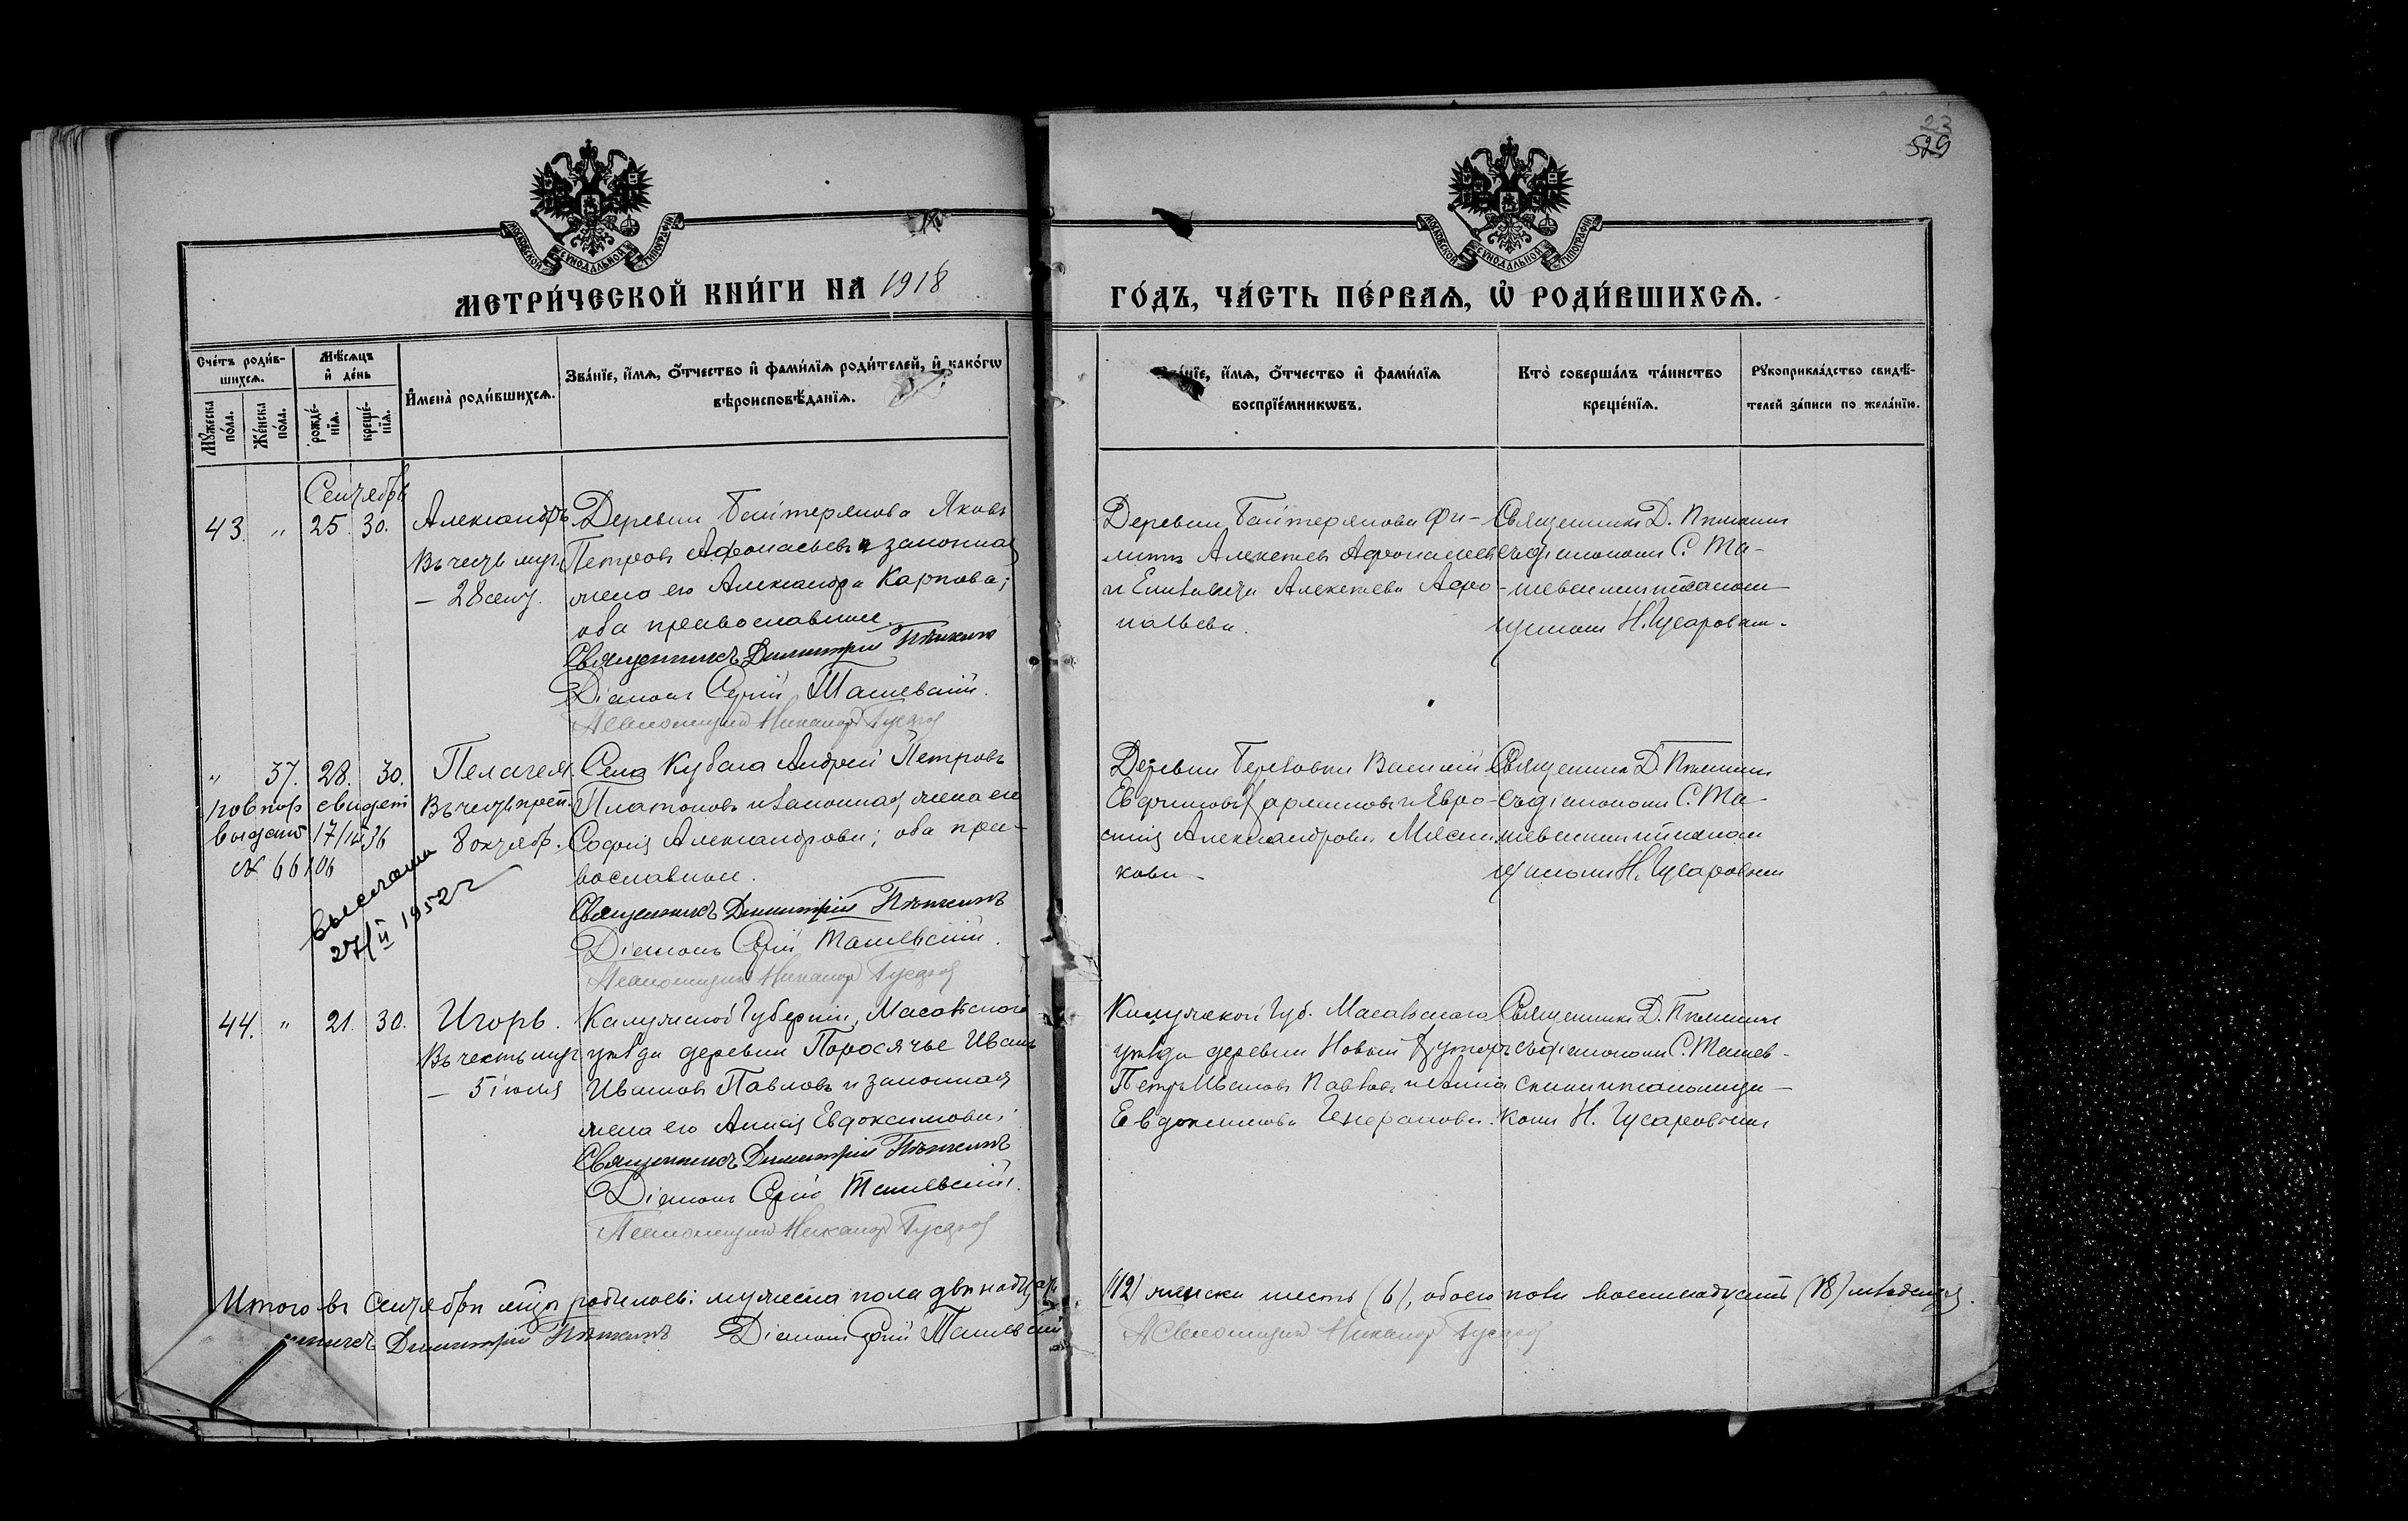 23
529
МОСКОВСКОЙ СѴНОДАЛЬНОЙ ТИПОГРАФІИ
МОСКОВСКОЙ СѴНОДАЛЬНОЙ ТИПОГРАФІИ
МЕТРИ́ЧЕСКОЙ КНИ́ГИ НА 1918
ГО́ДЪ, ЧА́СТЬ ПЕ́РВАѦ, Ѡ҆ РОДИ́ВШИХСѦ.
Сче́тъ роди́в-
шихсѧ.
Мꙋ́жеска по́ла.
Же́нска по́ла.
Мѣ́сѧцъ
и҆ де́нь
рожде́-
нїѧ.
креще́-
нїѧ.
И҆мена̀ роди́вшихсѧ.
Зва́нїе, и҆́мѧ, ѻ҆́тчество и҆ фами́лїѧ роди́телей, и҆ како́гѡ
вѣроисповѣ́данїѧ.
Зва́нїе, и҆́мѧ, ѻ҆́тчество и҆ фами́лїѧ
воспрїе́мникѡвъ.
Кто̀ соверша́лъ та́инство
креще́нїѧ.
Рꙋкоприкла́дство свидѣ́-
телей за́писи по жела́нїю.
Сентябрь
43. " 25. 30.
Александръ
Въ честь муч.
— 28 сент.
Деревни Байтерякова Яковъ
Петровъ Афонасьевъ и законная
жена его Александра Карпова;
оба православные.
Священникъ Димитрій
Діаконъ Сергій Ташевскій.
Псаломщикъ Никаноръ Гусаров
Деревни Байтерякова Фи-
липпъ Алексеевъ Афонасьевъ
и Елизавета Алексеева Афо-
насьева.
Священникъ Д.
съ діакономъ С. Та-
шевскимъ и псалом-
щикомъ Н. Гусаровым.
" 37. 28. 30.
повтор свидет
выдано 17/IV 36
№ 66106
выслана
27/II 1952 г
Пелагея.
Въ честь преп.
8 октябр.
Села Кубаса Андрей Петровъ
Платоновъ и законная жена его
Софія Александрова; оба пра-
вославные.
Священникъ Димитрій
Діаконъ Сергій Ташевскій.
Псаломщикъ Никаноръ Гусаров
Деревни Березовки Василій
Евфимовъ и Евро-
синія Александрова Мясни-
кова
Священник Д
съ діакономъ С. Та-
шевскимъ и псалом
щикомъ Н. Гусаровым
44. " 21. 30.
Игорь.
Въ честь муч
— 5 іюня
Калужской Губерніи, Масальского
уезда деревни Поросячье Иванъ
Ивановъ Павловъ и законная
жена его Анна Евдокимова;
Священникъ Димитрій
Діаконъ Сергій Ташевскій.
Псаломщикъ Никаноръ Гусаров
Калужской Губ. Масальского
уезда деревни Новый Хуторъ
Петръ Ивановъ Павловъ и Анна
Евдокимова
Священникъ Д.
съ діакономъ С. Ташев-
скимъ и псаломщи-
комъ Н. Гусаровымъ
Итого въ Сентябрѣ мцѣ родилось: мужеска пола двѣнадцать (12) женска шесть (6), обоего пола восемнадцать (18) младенцев.
Димитрій Діаконъ Сергій Ташевскій Псаломщикъ Никаноръ Гусаров